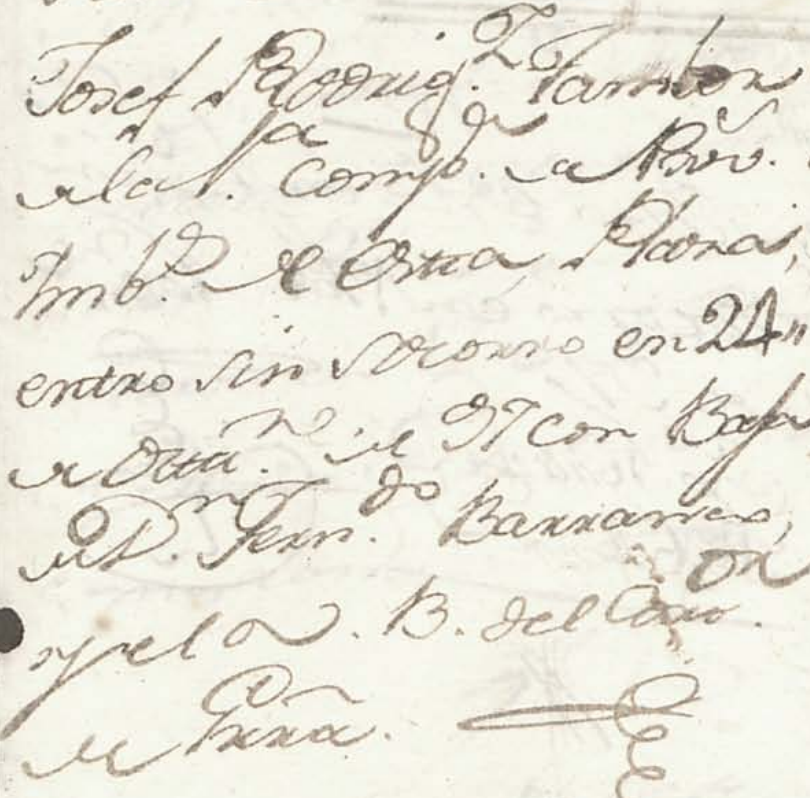 Josef Rodrig.z Tambor
de la 1.a Comp.a de
Imb.s de esta Plaza,
entro sin socorro en 24
de Oct.re de 97 con Baja
de D.n Fern.do Barranco,
y el V. B. del Comor.
de Grra.